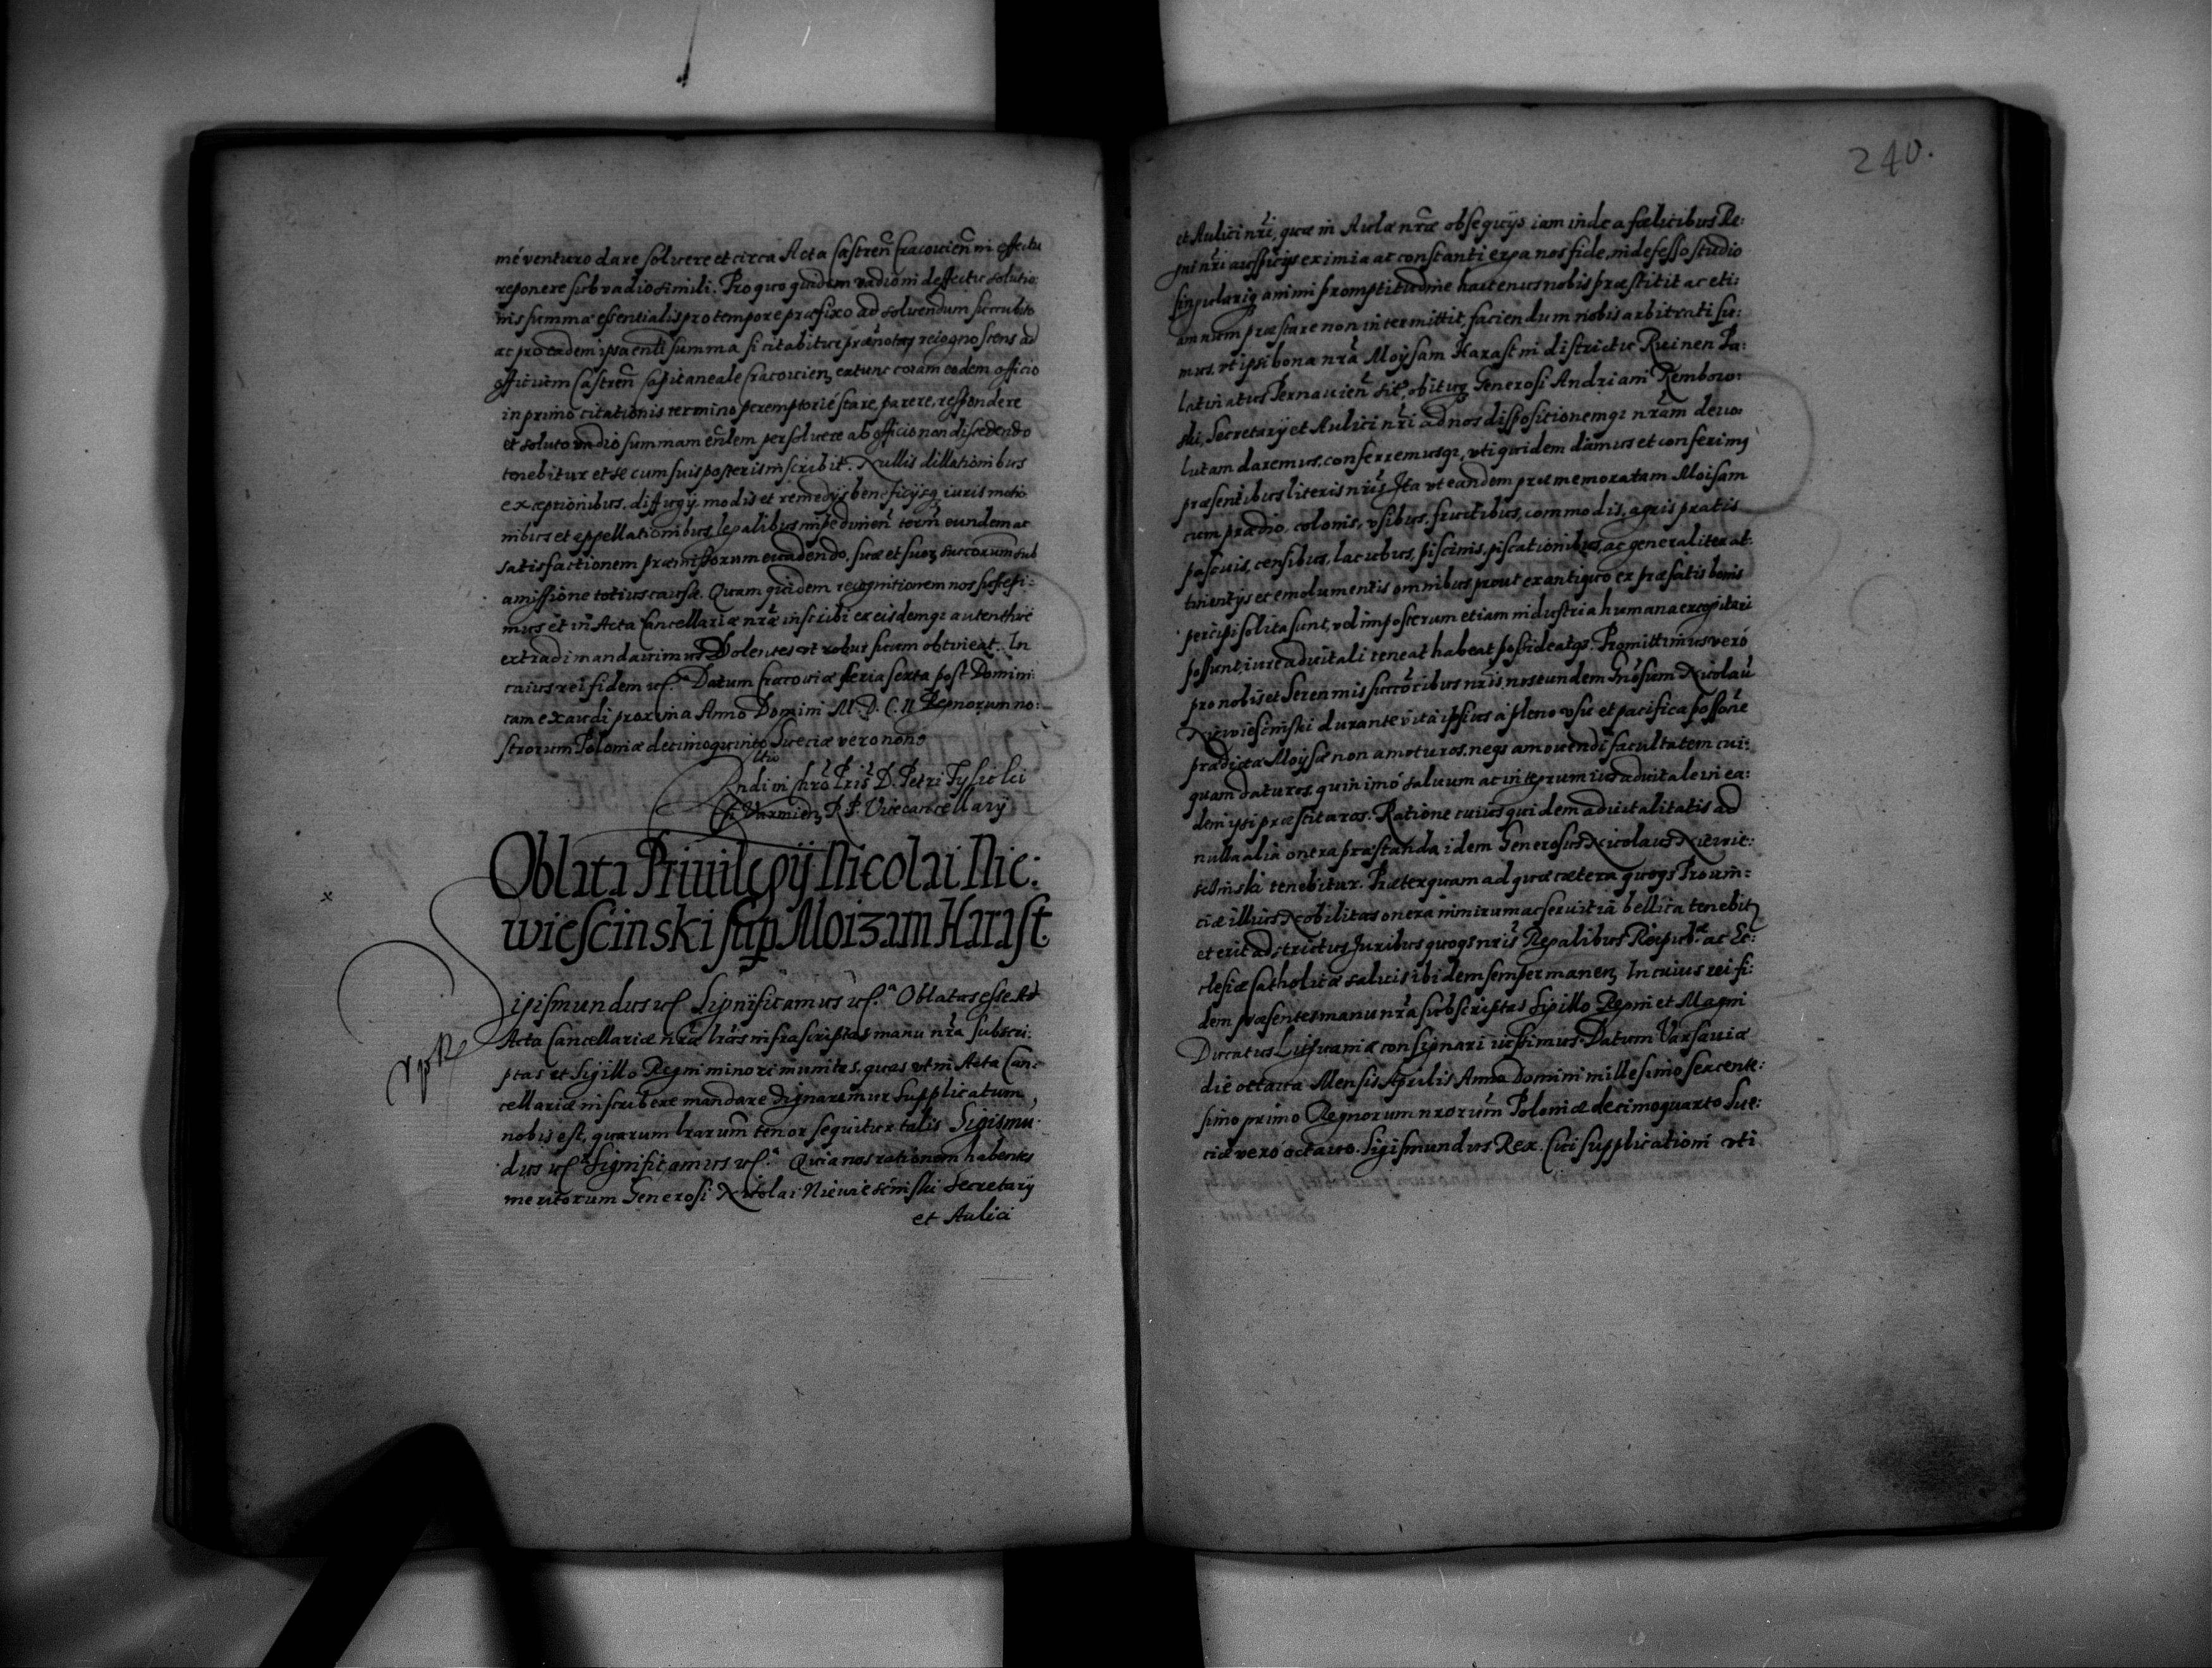 mé venturo dare solvere et circa Acta Castreñ Cracovieñ in effectu
reponere sub vadio simili. Pro quo quidem vadio in deffectu solutio:
nis summæ essentialis pro tempore præfixo ad solvendum succubito
ac pro eadem ipsa enti summa si citabitur prænotaꝫ recognoscens ad
officium Castreñ Capitaneale Cracovienꝫ extunc coram eodem officio
in primo citationis termino peremptorié stare, parere, respondere
et soluto vadio summam eñlem persolvere ab officio non discedendo
tenebitur et se cum suis posteris inscribit. Nullis dillationibus
exceptionibus, diffugÿ modis et remedÿs beneficÿsqꝫ iuris motio
nibus et appellationibus legalibus impedimen̄ term̄ eundem ac
satisfactionem præmissorum evadendo, suæ et suoꝝ succorum sub
amissione totius causæ. Quam quidem recognitionem nos suscepi:
mus et in Acta Cancellariæ nr̃æ inscribi ex eisdemqꝫ autenthicé
extradi mandavimus Volentes vt robur suum obtineat. In
cuius rei fidem ꝛc.ª Datum Cracoviæ feria sexta post Domini:
cam exaudi proxima Anno Domini M. D. C. II Regnorum no:
strorum Poloniæ decimoquinto Sueciæ vero nono
ltio
ndi in Chrõ Pr̃is D. Petri Tylicki
Ep̃i Varmienꝫ R. P. Vicecancellarÿ
Oblata Priuilegÿ Nicolai Nie:
wieścinski sup Moizam Harast
Sigismundus ꝛc Signifficamus ꝛc.ª Oblatas esse Ad
Acta Cancellariæ nr̃æ lr̃as infrascriptas manu nr̃a subscri:
ptas et Sigillo Regni minori munitas, quas vt in Acta Can:
cellariæ inscribere mandare dignaremur supplicatum
nobis est, quarum lrarum̃ tenor sequitur talis Sigismu:
dus ꝛc.ª Significamus ꝛc.ª Quia nos rationem habentes
meritorum Generosi Nicolai Niewieścinski Secretarÿ
et Aulici
240.
et Aulici nr̃i, quæ in Aulæ nr̃æ obsequÿs iam inde a fœlicibus Re:
gni nr̃i auspicÿs eximia ac constanti erga nos fide, indefesso studio
singulariqꝫ animi promptitudine hactenus nobis præstitit ac eti:
amnum præstare non intermittit, faciendum nobis arbitrati su:
mus, vt ipsi bona nr̃a Moysam Harast in districtu Ruinen Pa:
latinatus Pernavien̄ sit, obituqꝫ Generosi Andriani Remboro:
ski, Secretarÿ et Aulici nr̃i ad nos dispositionemqꝫ nr̃am devo:
lutam daremus, conferremusqꝫ, vti quidem damus et conferimꝰ
præsentibus literis nr̃is Ita vt eandem præmemoratam Moisam
cum prædio, colonis, vsibus, fructibus, commodis, agris pratis
pascuis, censibus, lacubus, piscinis, piscationibus, ac generaliter at:
tinentÿs et emolumentis omnibus prout ex antiquo ex præfatis bonis
percipi solita sunt, vel imposterum etiam industria humana excogitari
possunt, iure advitali teneat habeat possideatqꝫ. Promittimus veró
pro nobis et Serenmis succõribus nr̃is, nos eundem Gñosum Nicolaũ
Niewieścinski durante vita ipsius á pleno vsu et pacifica possõne
prædictæ Moysæ non amoturos, neqꝫ amovendi facultatem cui:
quam daturos, quin imó salvum ac integrum ius advitale in ea:
dem ipsi præstituros. Ratione cuius quidem advitalitatis ad
nulla alia onera præstanda idem Generosus Nicolaus Niewie:
scinski tenebitur. Præterquam ad quæ cætera quoqꝫ Provin:
ciæ illius Nobilitas onera nimirum ac servitia bellica tenebitꝛ
et erit adstrictus Juribus quoqꝫ nr̃is Regalibus Reipub.æ ac Ec:
clesiæ Catholicæ salvis ibidem semper manenꝫ. In cuius rei fi:
dem præsentes manu nr̃a subscriptas Sigillo Regni et Magni
Ducatus Lituaniæ consignari iussimus. Datum Varsaviæ
die octava Mensis Aprilis Anno Domini millesimo sexcente:
simo primo Regnorum nrorum̃ Poloniæ decimoquarto Sue:
ciæ veró octavo. Sigismundus Rex. Cui supplicationi vti